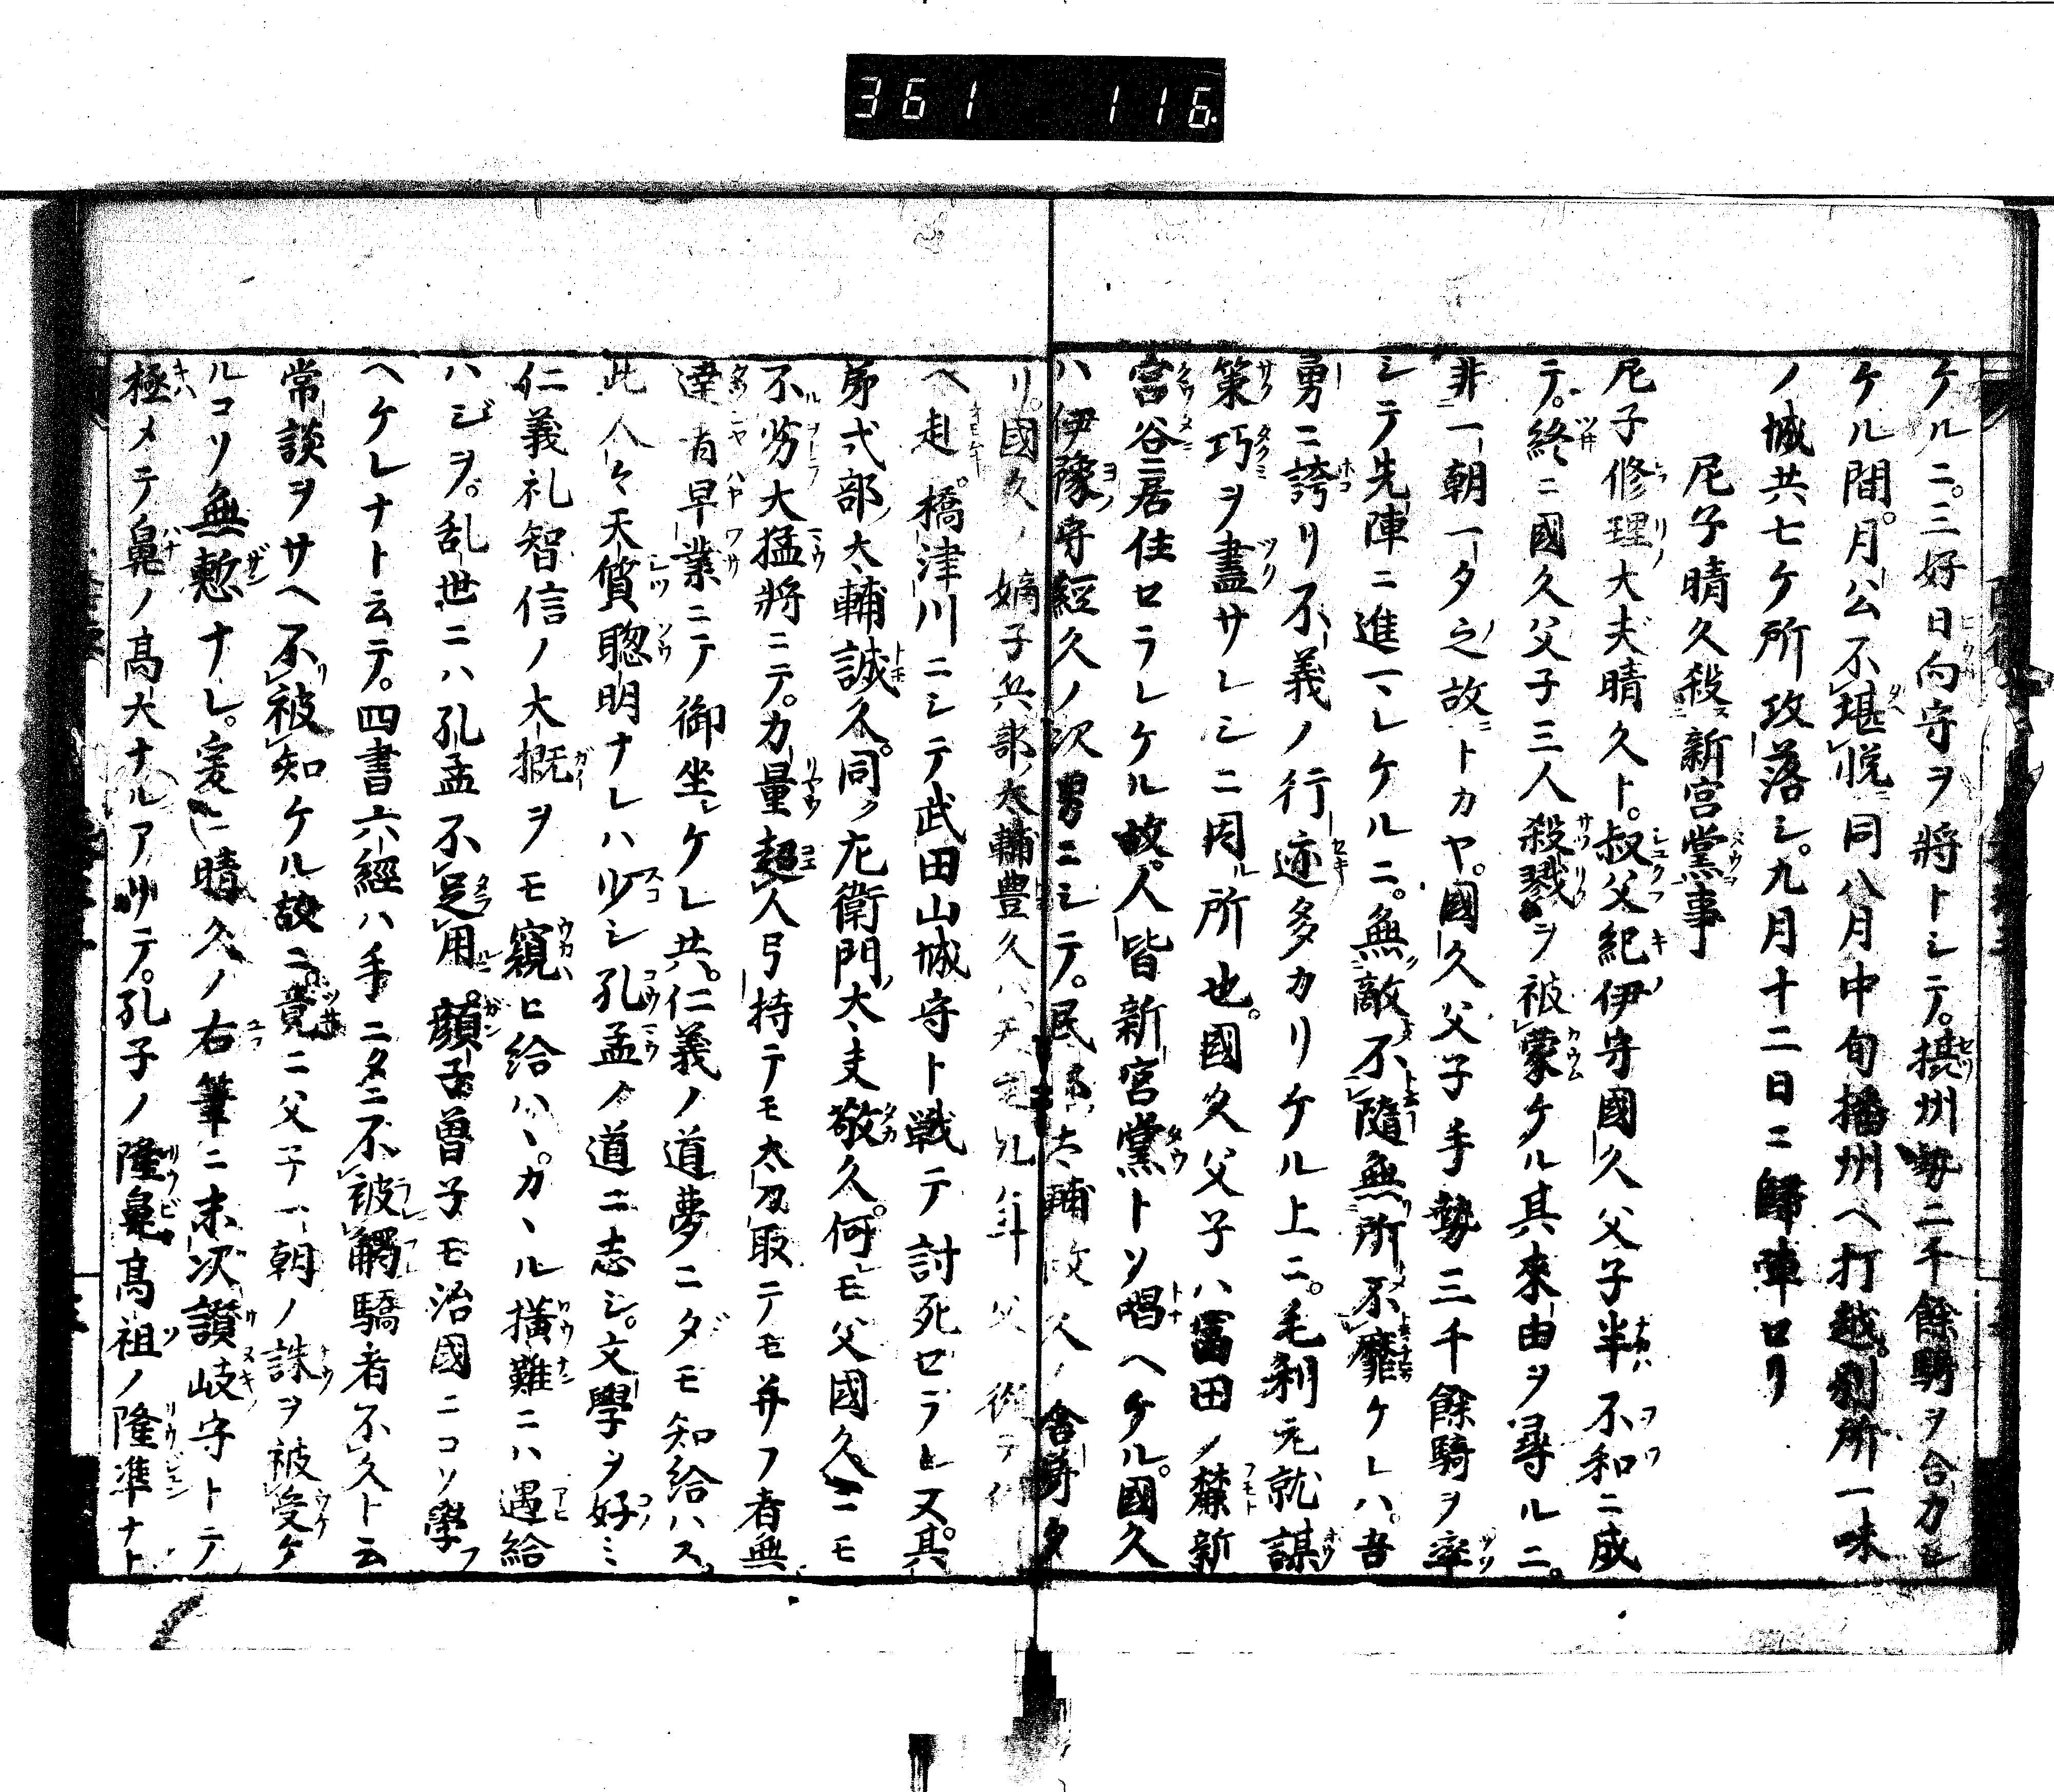 361 116
ケルニ。三好日向守ヲ將トシテ。攝州勢二千餘騎ヲ合力
ケル間。月公不堪悦同八月中旬播州ヘ打越。別所一味
ノ城共七ケ所攻落シ。九月十二日ニ歸陣
尼子晴久殺新宮黨事
尼子修理大夫晴久ト。叔父紀伊守國久父子半不和ニ成
テ。終ニ國久父子三人殺戮ヲ被蒙ケル其來由ヲ尋ルニ。
非一朝一夕之故トカヤ。國久父子手勢三千餘騎ヲ率
シテ先陣ニ進マレケルニ。無敵不隨無所不靡ケレハ。吾
勇ニ誇リ不義ノ行迹多カリケル上ニ。毛利元就謀
策巧ヲ盡サレシニ因所也。國久父子ハ冨田ノ麓新
宮谷ニ居住セラレケル故。人皆新宮黨トソ唱ヘケル。國久
ハ伊豫守經久ノ次男ニシテ。民部太輔政久ノ舎弟タ
リ。國久ノ嫡子兵部太輔豊久ハ。
ヘ赴。橋津川ニシテ武田山城守ト戦テ討死セラレ又其
弟式部太輔誠久。同ク左衛門大夫敬久。何モ父國久ニモ
不劣大猛將ニテ。力量超人弓持テモ太刀取テモ并フ者無
達者早業ニテ御坐ケレ共。仁義ノ道夢ニダモ知給ハス。
此人々天質聰明ナレハ少シ孔孟ノ道ニ志シ。文學ヲ好ミ
仁義礼智信ノ大概ヲモ窺ヒ給ハヽ。カヽル横難ニハ遇給
ハジヲ。乱世ニハ孔孟不足用。顔子曽子モ治國ニコソ學フ
ヘケレナト云テ。四書六經ハ手ニタニ不被觸驕者不久ト云
常談ヲサヘ不被知ケル故ニ。竟ニ父子一朝ノ誅ヲ被受ケ
ルコソ無慙ナレ。爰ニ晴久ノ右筆ニ末次讃岐守トテ
極メテ鼻ノ高大ナルアリテ。孔子ノ隆鼻高祖ノ隆準ナト